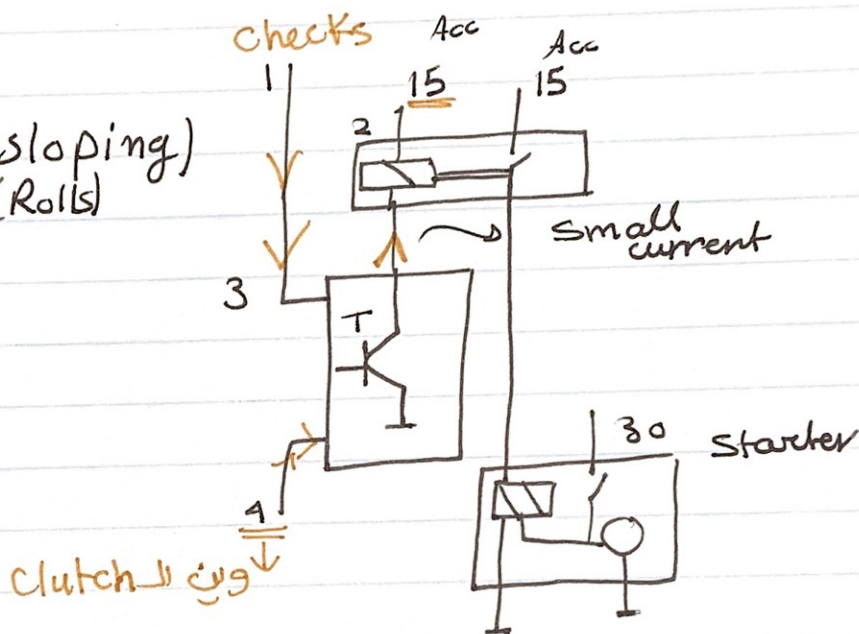 checks
Acc
Acc
1
15
15
sloping)
(Rolls)
2
Small
current
3
T
30
Starter
4
Clutch الـ